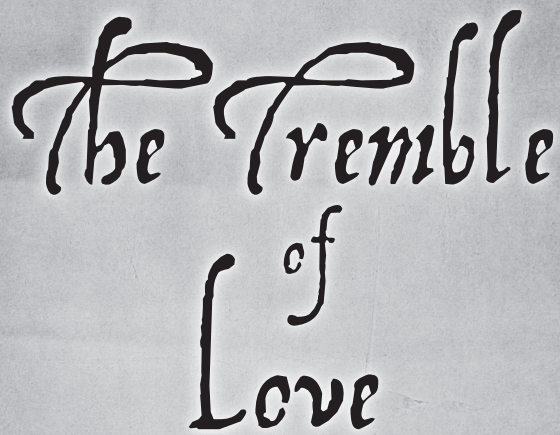 The Tremble
of
Love